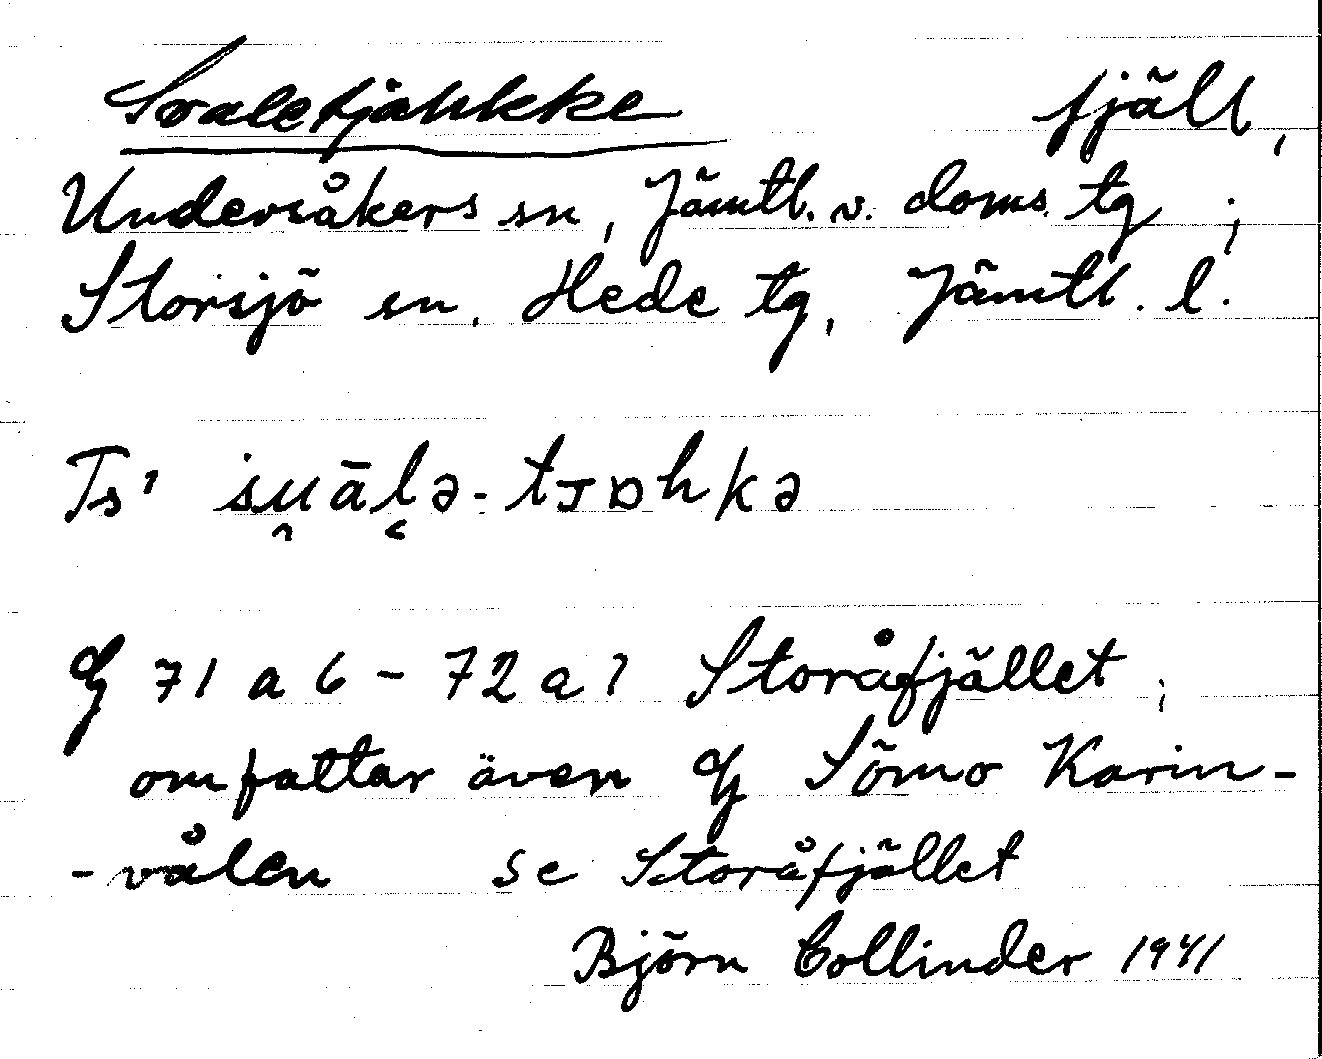 Svaletjahkke fjäll,
Undersåkers sn, Jämtl. v. doms. tg;
Storsjö sn, Hede tg, Jämtl. l.
Ts' su̯āl̜ə-tᴊɒhkə
Gg 71 a 6 - 72 a 1 Storåfjället,
omfattar även Gg Sömo Karin-
-vålen se Storåfjället
Björn Collinder 1941